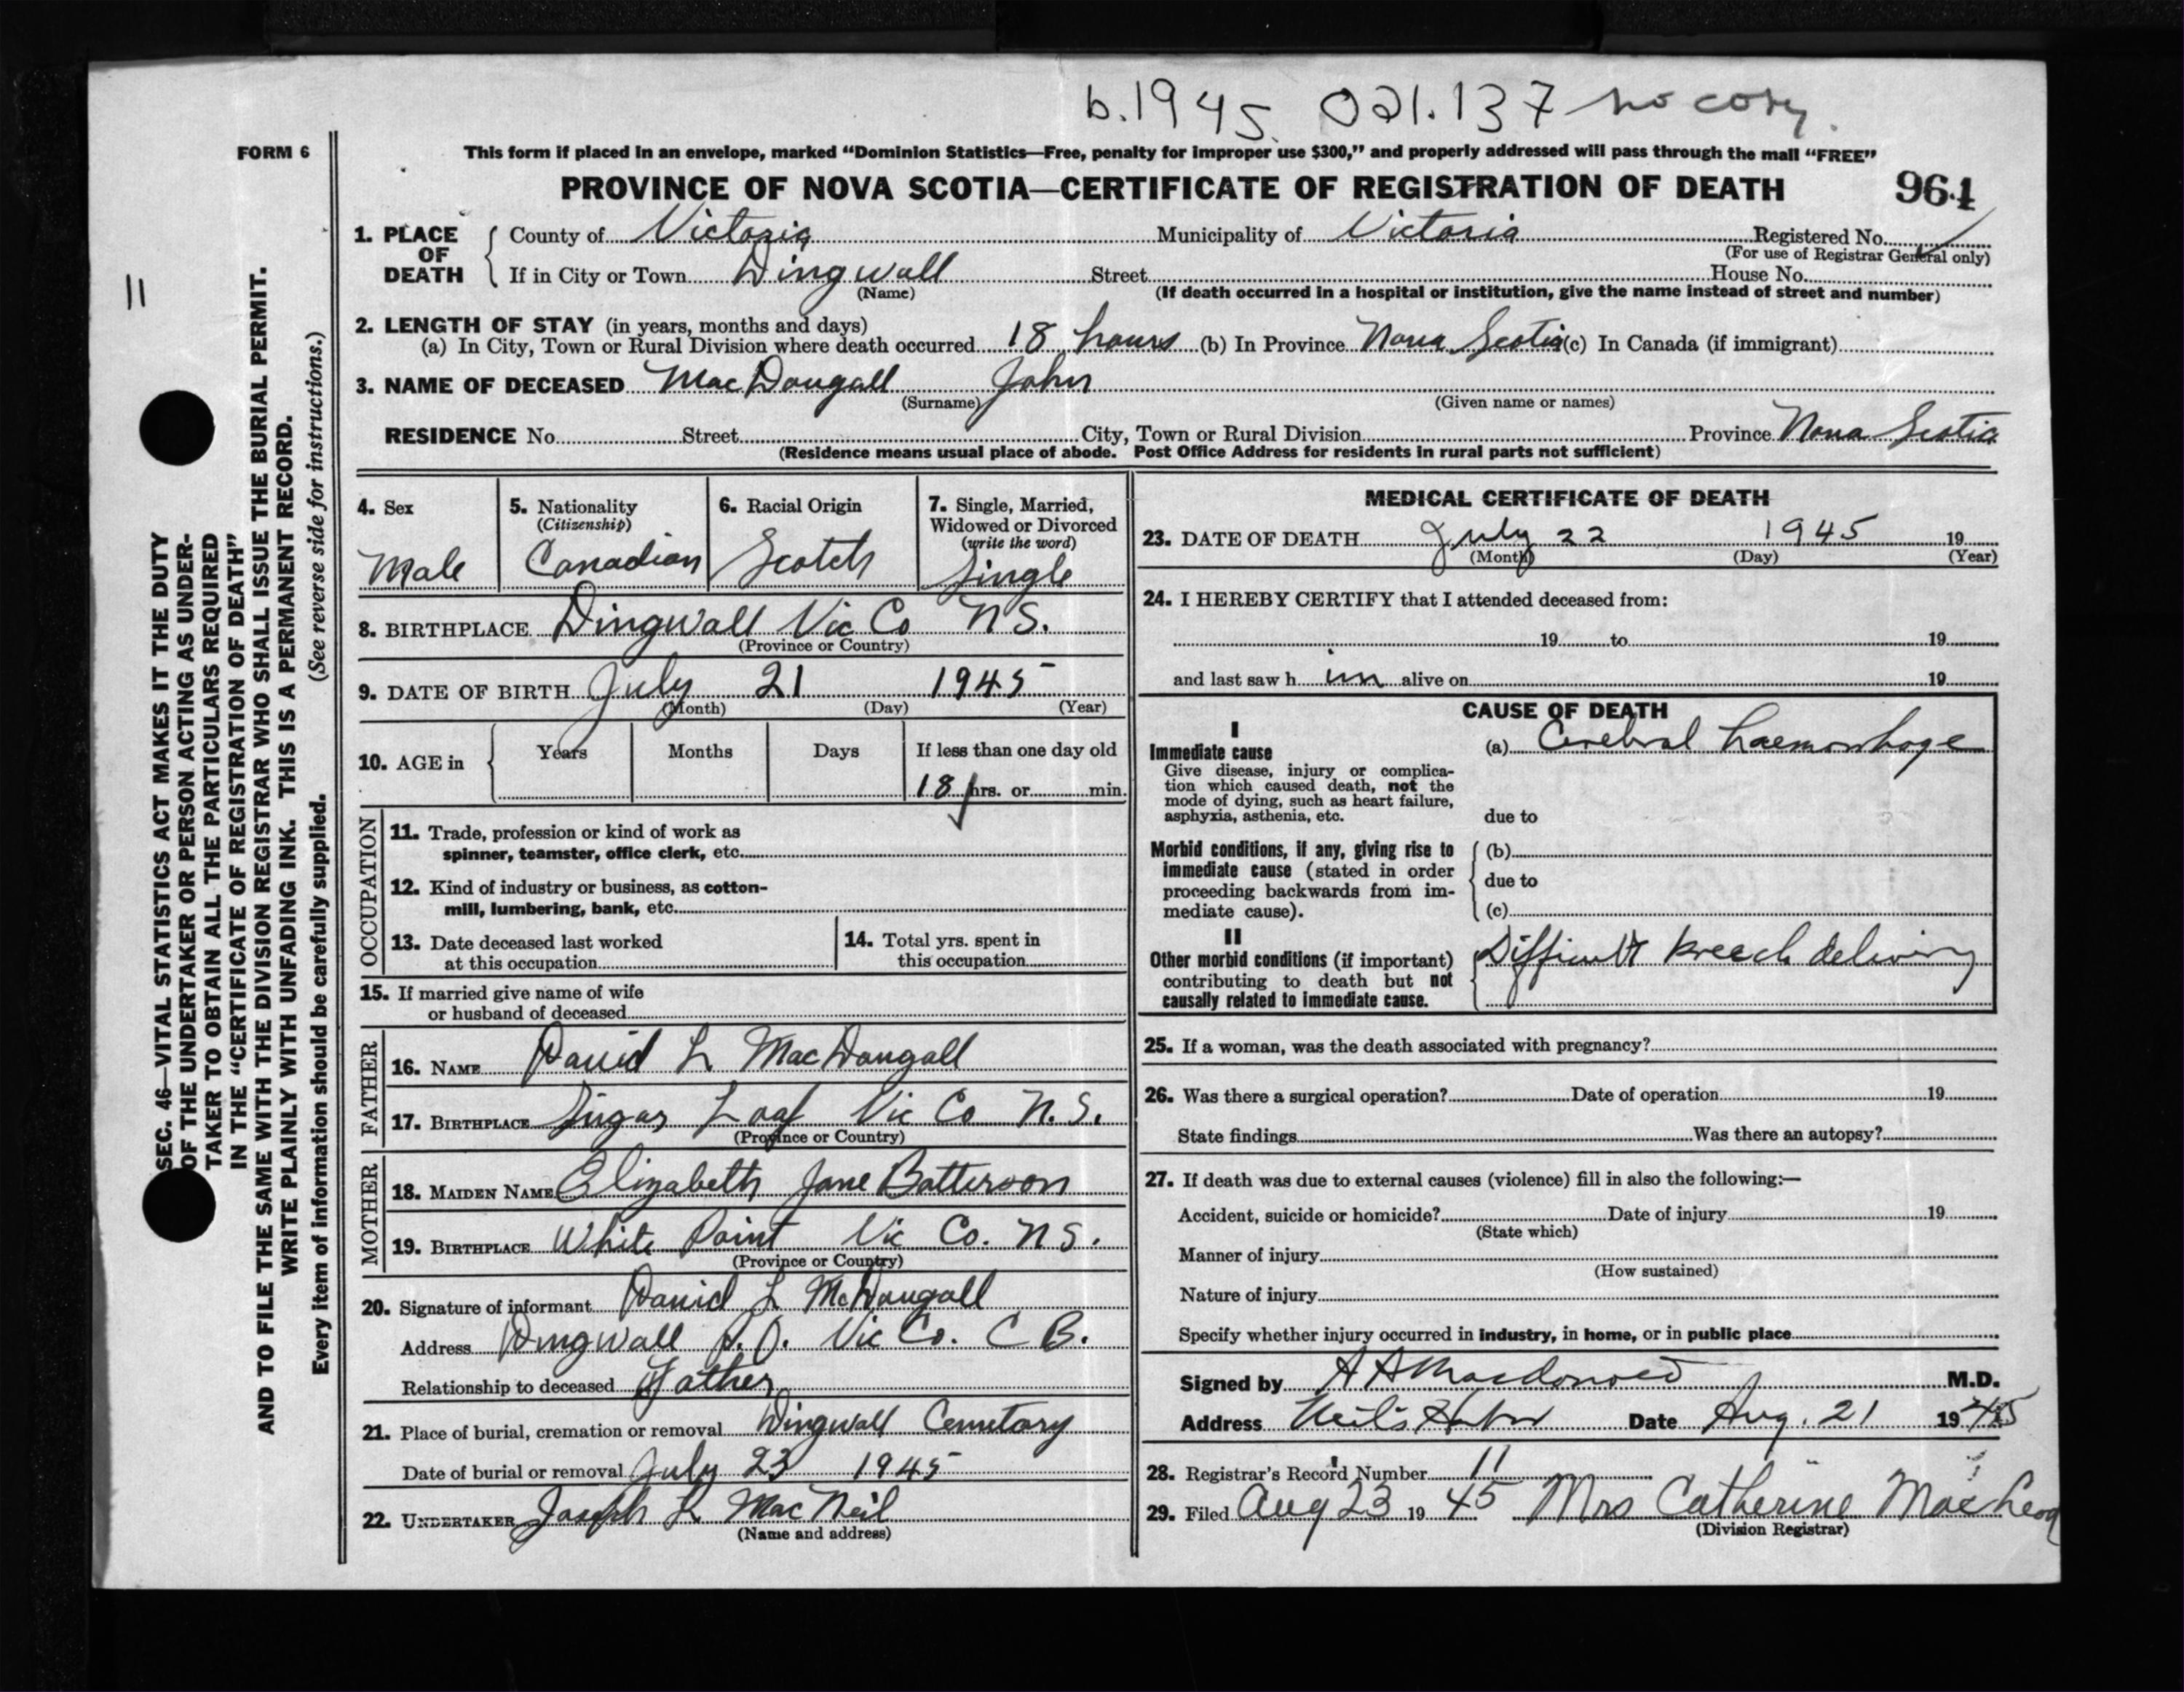 b.1945. 021.137 no copy.
FORM 6
This form if placed in an envelope, marked “Dominion Statistics—Free, penalty for improper use $300,” and properly addressed will pass through the mail “FREE”
PROVINCE OF NOVA SCOTIA—CERTIFICATE OF REGISTRATION OF DEATH 964
1. PLACE OF DEATH County of Victoria Municipality of Victoria Registered No.
(For use of Registrar General only)
If in City or Town Dingwall Street House No.
(Name) (If death occurred in a hospital or institution, give the name instead of street and number)
2. LENGTH OF STAY (in years, months and days)
(a) In City, Town or Rural Division where death occurred 18 hours (b) In Province Nova Scotia (c) In Canada (if immigrant)
3. NAME OF DECEASED MacDougall John
(Surname) (Given name or names)
RESIDENCE No. Street City, Town or Rural Division Province Nova Scotia
(Residence means usual place of abode. Post Office Address for residents in rural parts not sufficient)
4. Sex
Male
5. Nationality
(Citizenship)
Canadian
6. Racial Origin
Scotch
7. Single, Married,
Widowed or Divorced
(write the word)
Single
8. BIRTHPLACE Dingwall Vic Co N S.
(Province or Country)
9. DATE OF BIRTH July 21 1945
(Month) (Day) (Year)
10. AGE in Years Months Days If less than one day old
18 hrs. or min.
OCCUPATION
11. Trade, profession or kind of work as
spinner, teamster, office clerk, etc.
12. Kind of industry or business, as cotton-
mill, lumbering, bank, etc.
13. Date deceased last worked
at this occupation
14. Total yrs. spent in
this occupation
15. If married give name of wife
or husband of deceased
FATHER
16. NAME David L MacDougall
17. BIRTHPLACE Sugar Loaf Vic Co N.S.
(Province or Country)
MOTHER
18. MAIDEN NAME Elizabeth Jane Batterson
19. BIRTHPLACE White Point Vic Co. N S.
(Province or Country)
20. Signature of informant David L McDougall
Address Dingwall P.O. Vic Co. C B.
Relationship to deceased Father
21. Place of burial, cremation or removal Dingwall Cemetary
Date of burial or removal July 23 1945
22. UNDERTAKER Joseph L MacNeil
(Name and address)
MEDICAL CERTIFICATE OF DEATH
23. DATE OF DEATH July 22 1945 19
(Month) (Day) (Year)
24. I HEREBY CERTIFY that I attended deceased from:
19 to 19
and last saw h im alive on 19
CAUSE OF DEATH
I
Immediate cause (a) Cerebral haemorrhage
Give disease, injury or complica-
tion which caused death, not the
mode of dying, such as heart failure,
asphyxia, asthenia, etc. due to
Morbid conditions, if any, giving rise to (b)
immediate cause (stated in order
proceeding backwards from im- due to
mediate cause). (c)
II
Other morbid conditions (if important) Difficult breech delivery
contributing to death but not
causally related to immediate cause.
25. If a woman, was the death associated with pregnancy?
26. Was there a surgical operation? Date of operation 19
State findings Was there an autopsy?
27. If death was due to external causes (violence) fill in also the following:—
Accident, suicide or homicide? Date of injury 19
(State which)
Manner of injury
(How sustained)
Nature of injury
Specify whether injury occurred in industry, in home, or in public place
Signed by A A Macdonald M.D.
Address Neil's Harbor Date Aug. 21 1945
28. Registrar's Record Number 11
29. Filed Aug 23 19 45 Mrs Catherine MacLeod
(Division Registrar)
11
SEC. 46—VITAL STATISTICS ACT MAKES IT THE DUTY
OF THE UNDERTAKER OR PERSON ACTING AS UNDER-
TAKER TO OBTAIN ALL THE PARTICULARS REQUIRED
IN THE “CERTIFICATE OF REGISTRATION OF DEATH”
AND TO FILE THE SAME WITH THE DIVISION REGISTRAR WHO SHALL ISSUE THE BURIAL PERMIT.
WRITE PLAINLY WITH UNFADING INK. THIS IS A PERMANENT RECORD.
Every item of information should be carefully supplied. (See reverse side for instructions.)